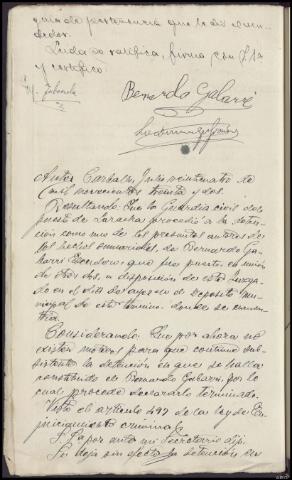 Leida se ratifica, firma con S. Sª
y certifico.
Bernardo Gabarri
Auto: Carballo, Julio veinticuatro de
mil novecientos treinta y dos.
Resultando: Que la Guardia civil del
puesto de Laracha procedió a la deten-
ción como uno de los presuntos autores de
los hechos sumariales, de Bernardo Ga-
barri Escudero que fue puesto en unión
de otros dos, a disposición de este Juzga-
do en el día de ayer en el Depósito mu-
nicipal de este término donde se encuen-
tra.
Considerando: Que por ahora no
existen motivos para que continue sub-
sistente la detención en que se halla
constituido el Bernardo Gabarri, por lo
cual procede declararlo terminado.
Visto el artículo 497 de la ley de En-
juiciamiento criminal.
S. Sª por ante mi Secretario dijo:
Se deja sin efecto la detención en